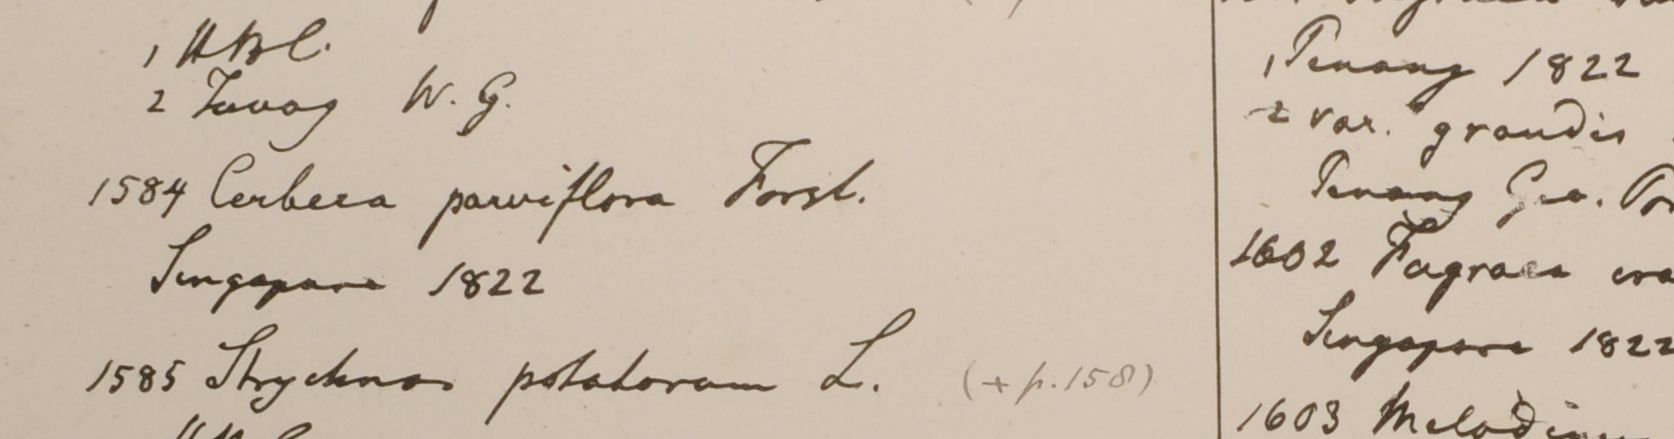 1 HBC.
2 Tavoy W. G.
1584 Cerbera parviflora Forst.
Singapore 1822
1585 Strychnos potatorum L. (+ p. 158)
1 Penang 1822
2 var. grandis
Penang Geo. Por
1602 Fagraea
Singapore 1822
1603 Melodinus